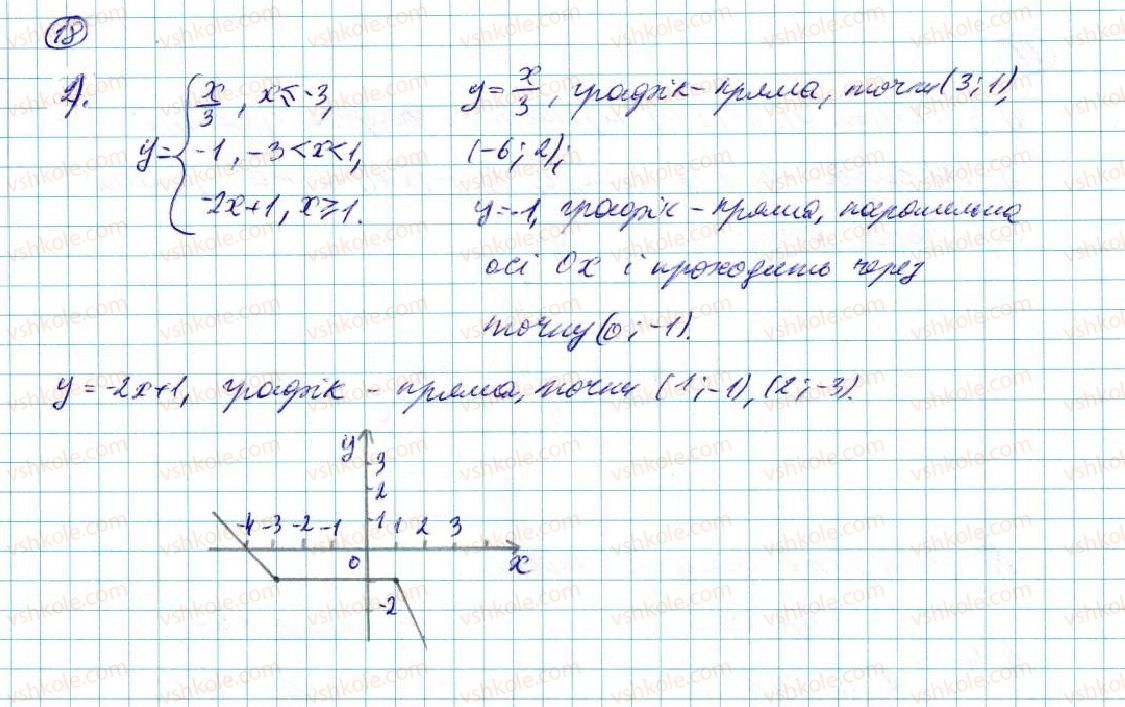 18
2).
y = { x/3, x ≤ -3,
-1, -3 < x < 1,
-2x+1, x ≥ 1.
y = x/3, графік - пряма, точки (3; 1),
(-6; 2);
y = -1, графік - пряма, паралельна
осі Ox і проходить через
точку (0; -1).
y = -2x+1, графік - пряма, точки (1; -1), (2; -3).
y
3
2
-4 -3 -2 -1 1 1 2 3
0 x
-2